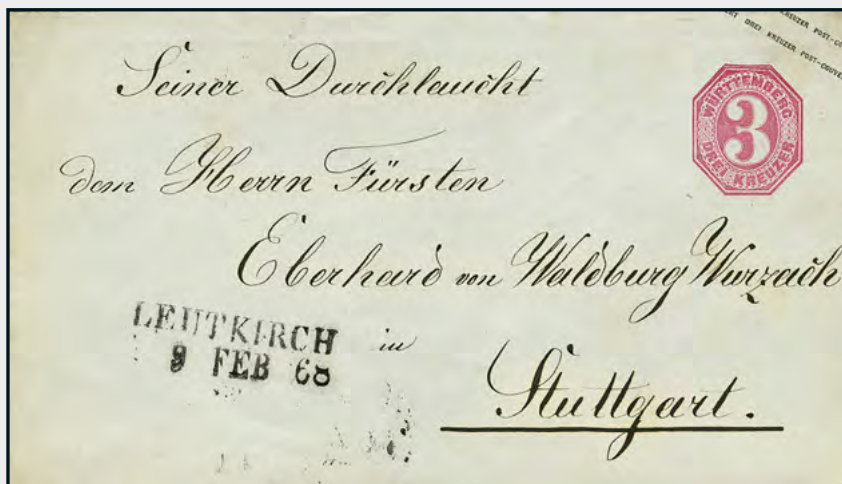 KREUZER POST-CO
DREI KREUZER POST-COUVE
Seiner Durchlaucht
WÜRTTEMBERG
3
DREI KREUZER
dem Herrn Fürsten
Eberhard von Waldburg Wurzach
LEUTKIRCH
9 FEB 68
in
Stuttgart.